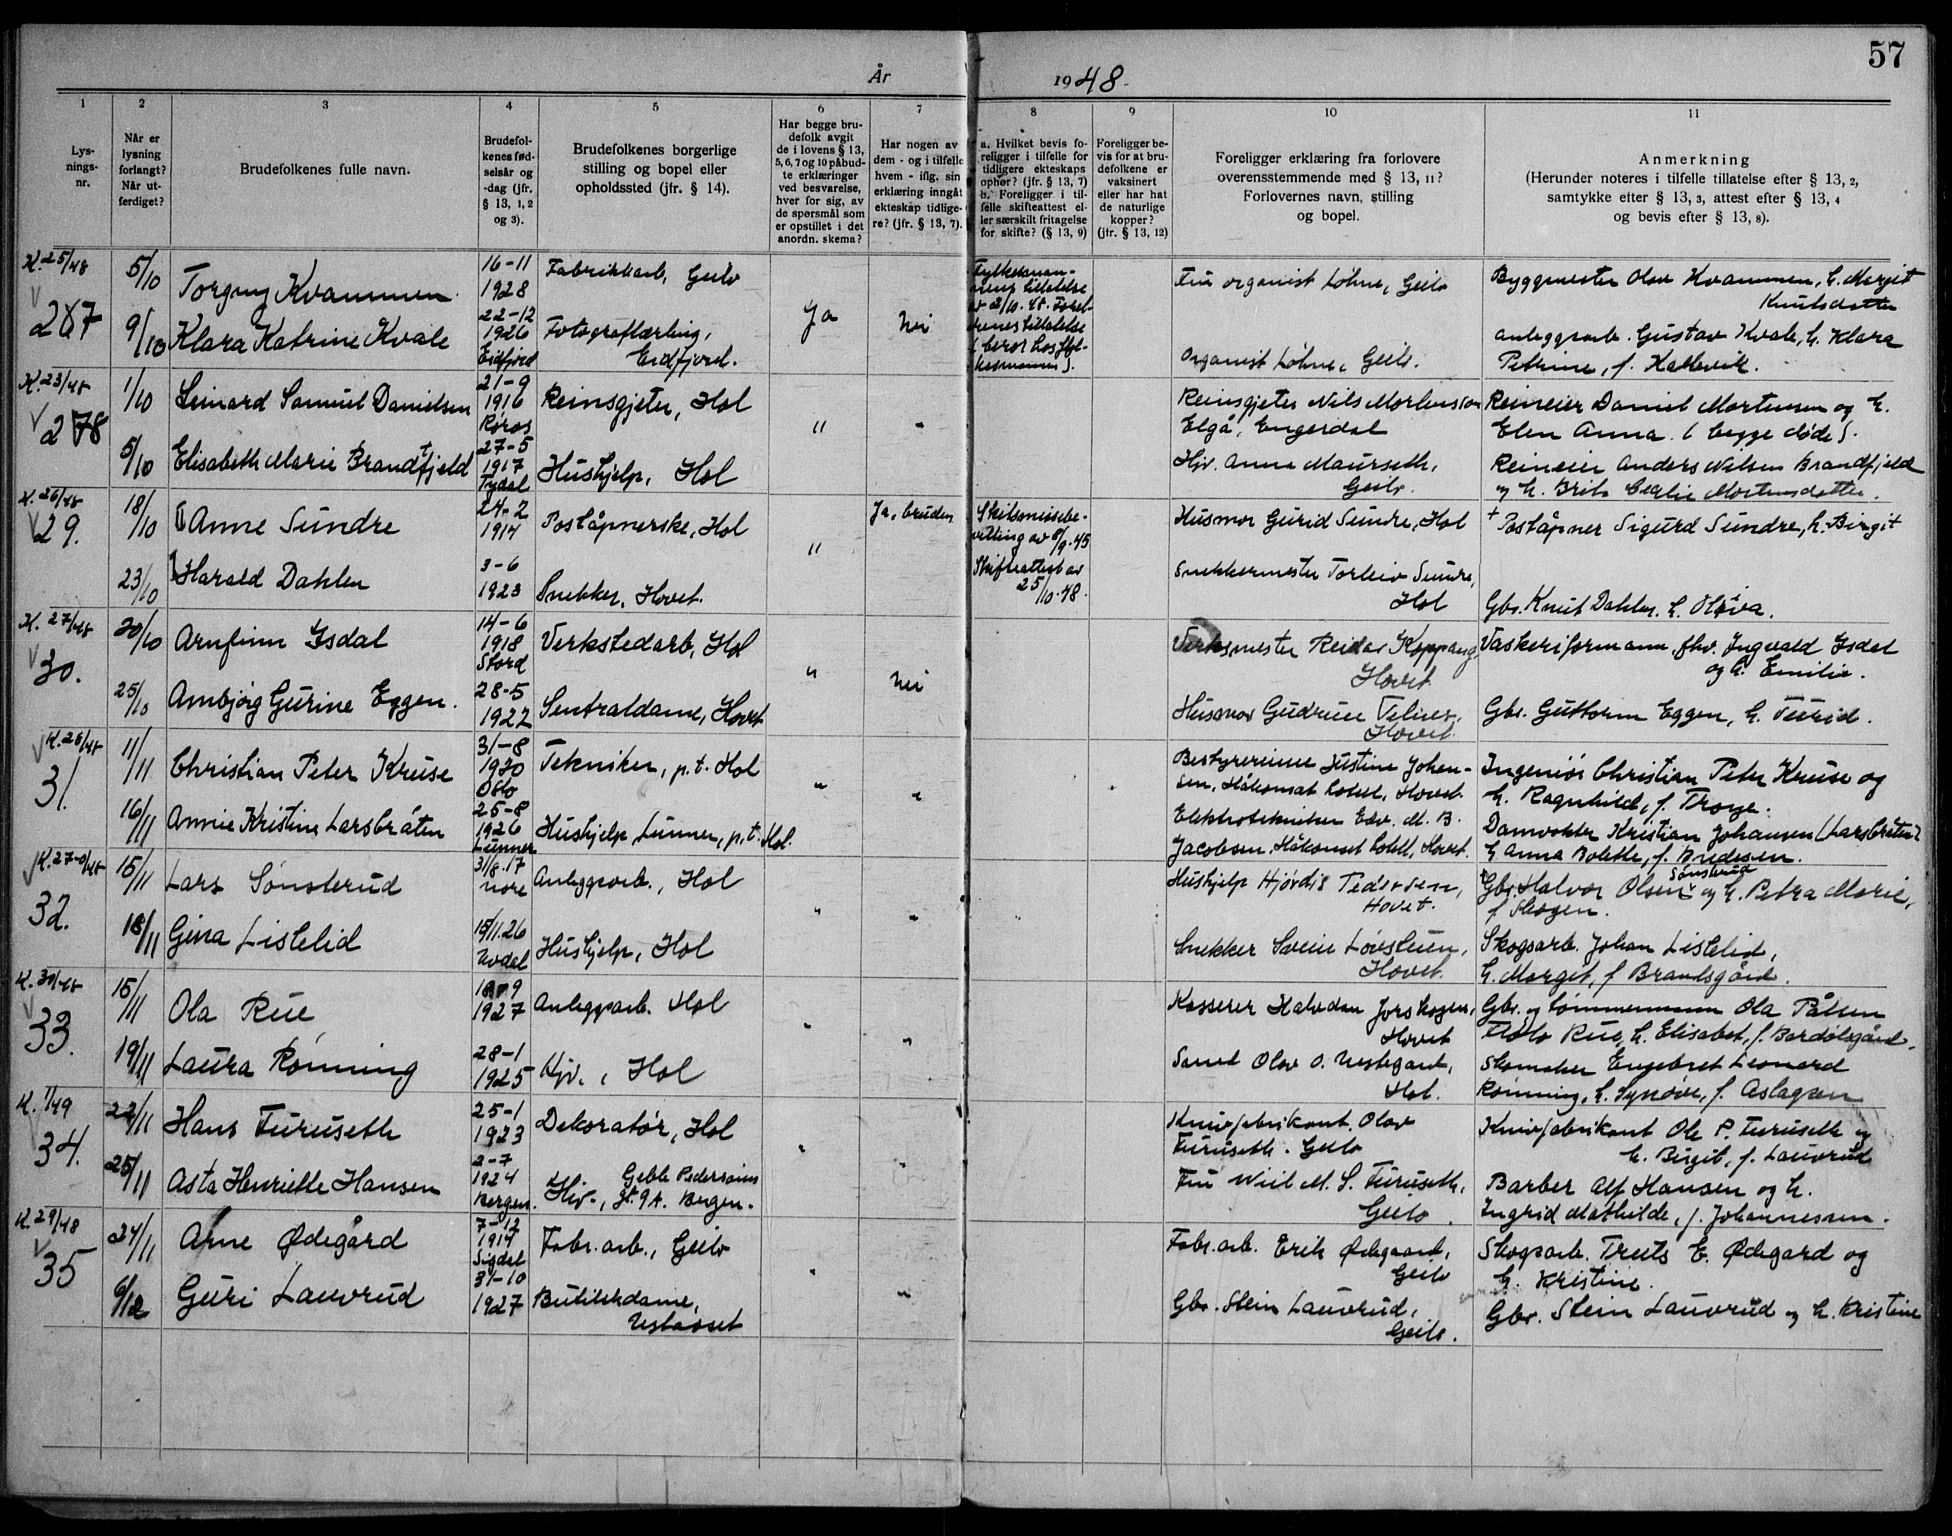 57
År 1948.
1 2 3 4 5 6 7 8 9 10 11
Lys-
nings-
nr.
Når er
lysning
forlangt?
Når ut-
ferdiget?
Brudefolkenes fulle navn.
Brudefol-
kenes fød-
selsår og
-dag (jfr.
§ 13, 1, 2
og 3).
Brudefolkenes borgerlige
stilling og bopel eller
opholdssted (jfr. § 14).
Har begge bru-
defolk avgit
de i lovens § 13,
5, 6, 7 og 10 påbud-
te erklæringer
ved besvarelse,
hver for sig, av
de spørsmål som
er opstillet i det
anordn. skema?
Har nogen av
dem - og i tilfelle
hvem - iflg. sin
erklæring inngått
ekteskap tidlige-
re? (jfr. § 13, 7).
a. Hvilket bevis fo-
religger i tilfelle for
tidligere ekteskaps
ophør? (jfr. § 13, 7)
b. Foreligger i til-
felle skifteattest el-
ler særskilt fritagelse
for skifte? (§ 13, 9)
Foreligger be-
vis for at bru-
defolkene er
vaksinert
eller har hat
de naturlige
kopper?
(jfr. § 13, 12)
Foreligger erklæring fra forlovere
overensstemmende med § 13, 11?
Forlovernes navn, stilling
og bopel.
Anmerkning
(Herunder noteres i tilfelle tillatelse efter § 13, 2,
samtykke etter § 13, 3, attest efter § 13, 4
og bevis efter § 13, 8).
K. 25/48
267
5/10
Torgny Kvammen
16-11
1928
Fabrikkarb, Geilo
Ja
nei
Fylkesman-
nens tillatelse
av 2/10.48. Forel-
drenes tillatelse
( beror hos fyl-
kesmannen ).
Fru organist Løhne, Geilo
Byggmester Olav Kvammen, h. Margit
Knutsdatter
9/10
Klara Katrine Kvale
22-12
1926
Eidfjord
Fotograflærling,
Eidfjord.
Organist Løhne, Geilo.
anleggsarb. Gustav Kvale, h. Klara
Petrine, f. Hallevik.
K. 23/48
278
1/10
Leinard Samuel Danielsen
21-9
1916
Røros
Reinsgjeter, Hol
"
"
Reinsgjeter Nils Mortensson
Elgå, Engerdal
Reineier Daniel Mortensen og h.
Elen Anna. ( begge døde ).
5/10
Elisabeth Marie Brandtfjeld
27-5
1917
Tydal
Hushjelp, Hol
Hjv. Anna Maurseth,
Geilo.
Reineier Anders Nilsen Brandfjeld
og h. Brita Cecilie Mortensdatter.
K. 26/48
29.
18/10
Anne Sundre
24-2
1914
Poståpnerske, Hol
"
Ja, bruden
Skilsmissebe-
villing av 8/9.45
Skifteattest av
25/10.48.
Husmor Gurid Sundre, Hol
+ Poståpner Sigurd Sundre, h. Birgit
23/10
Harald Dahlen
3-6
1923
Snekker, Hovet.
Snekkermester Torleiv Sundre,
Hol
Gbr. Knut Dahlen. h. Oløva.
K. 27/48
30.
20/10
Arnfinn Isdal
14-6
1918
Stord
Verkstedarb, Hol
"
nei
Verksmester Reidar Koppang,
Hovet
Vaskeriformann, fhv. Ingvald Isdal
og h. Emilie.
25/10
Ambjørg Gurine Eggen.
28-5
1922
Sentraldame, Hovet
Husmor Gudrun Felner,
Hovet
Gbr. Guttorm Eggen, h. Turid.
K. 28/48
31.
11/11
Christian Peter Kruse
31-8
1920
Oslo
Tekniker, p.t. Hol
"
"
Bestyrerinne Justine Johan-
sen, Håkonset hotell, Hovet.
Ingeniør Christian Peter Kruse og
h. Ragnhild, f. Troye.
16/11
Annie Kristine Larsbråten
25-8
1926
Lunner
Hushjelp Lunner, p.t. Hol.
Elektrotekniker Edv. M. B.
Jacobsen, Håkonset hotell, Hovet.
Damvokter Kristian Johansen (Larsbråten)
h. Anna Bolette, f. Bredesen.
K. 27-0/48
32.
15/11
Lars Sønsterud
31/8.17
Nore
Anleggsarb., Hol
"
"
Hushjelp Hjørdis Pedersen,
Hovet.
Sønsterud
Gbr. Halvor Olsen og h. Petra Marie,
f. Skogen.
18/11
Gina Listelid
15/11.26
Uvdal
Hushjelp, Hol
Snekker Svein Løvstuen,
Hovet.
Skogsarb. Johan Listelid,
h. Margit, f. Brandsgård.
K. 30/48
33.
15/11
Ola Rue
18-9
1927
Anleggsarb. Hol
"
"
Kasserer Halvdan Jorskogen,
Hovet
Gbr. og tømmermann Ola Pålsen
Flåto Rue, h. Elisabet, f. Bardølsgård.
19/11
Laura Rønning
28-1
1925
Hjv., Hol
Olav O. Nestegard,
Hol.
Skomaker Engebret Leonard
Rønning, h. Synøve, f. Aslagsen
K. 1/49
34.
22/11
Hans Furuseth
25-1
1923
Dekoratør, Hol
"
"
Knivfabrikant Olav
Furuseth. Geilo
Knivfabrikant Ole P. Furuseth og
h. Birgit, f. Lauvrud
25/11
Asta Henriette Hansen
2-7
1924
Bergen.
Gebble Pedersøns
Hjv., gt. 9A. Bergen.
Fru Wiil M. S. Furuseth,
Geilo.
Barber Alf Hansen og h.
Ingrid Mathilde, f. Johannessen.
K. 29/48
35
24/11
Arne Ødegård
7-12
1914
Sigdal
Fabr.arb., Geilo
"
"
Fabr.arb. Erik Ødegaard,
Geilo
Skogsarb. Truls E. Ødegard og
h. Kristine.
6/12
Guri Lauvrud
31-10
1927
Butikkdame,
Ustaoset
Gbr. Stein Lauvrud,
Geilo.
Gbr. Stein Lauvrud og h. Kristine